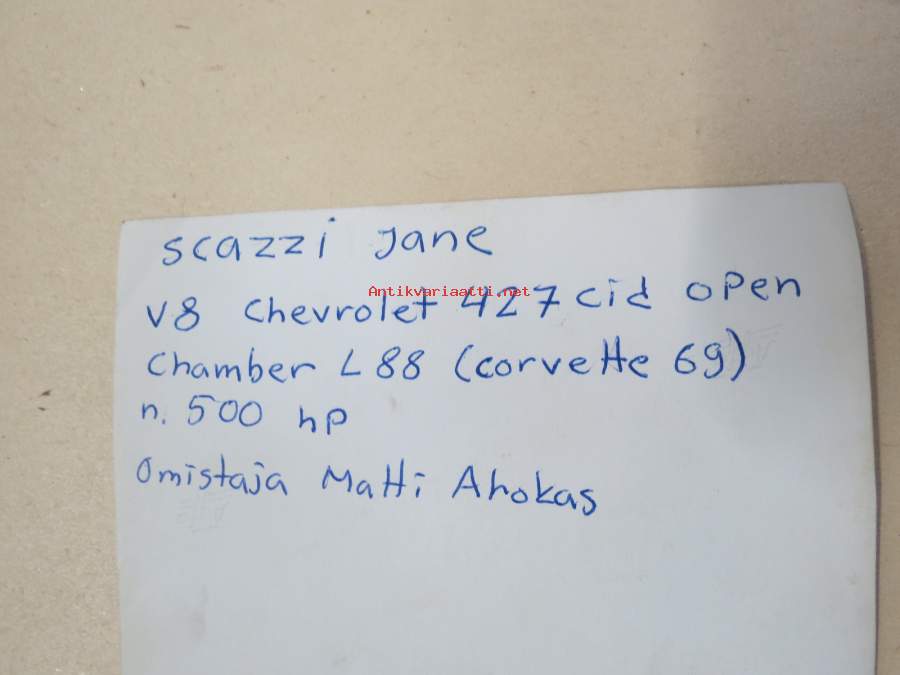 scazzi Jane
Antikvariaatti.net
V8 Chevrolet 427 cid open
Chamber L88 (corvette 69)
n. 500 hp
Omistaja Matti Ahokas